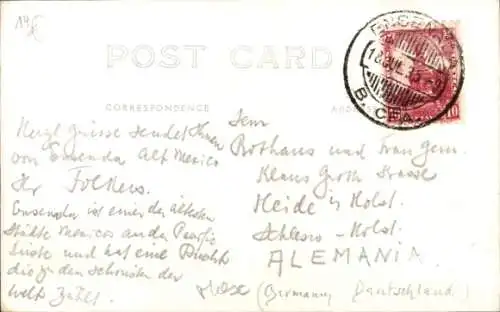 POST CARD
CORRESPONDENCE
ENSENADA
18 JUL
B. CFA.
10
Herzl Grüsse sendet Ihnen
von Ensenda Alt Mexico
Ihr Folkens.
Ensenada ist einer der ältesten
Städte Mexicos an der Pacific
Küste und hat eine Bucht
die zu den schönsten der
Welt zählt.
Fam
Rothaus und Frau gem.
Klaus Groth Strasse
Heide in Holst.
Schlesw-Holst.
ALEMANIA
(Germany Deutschland)